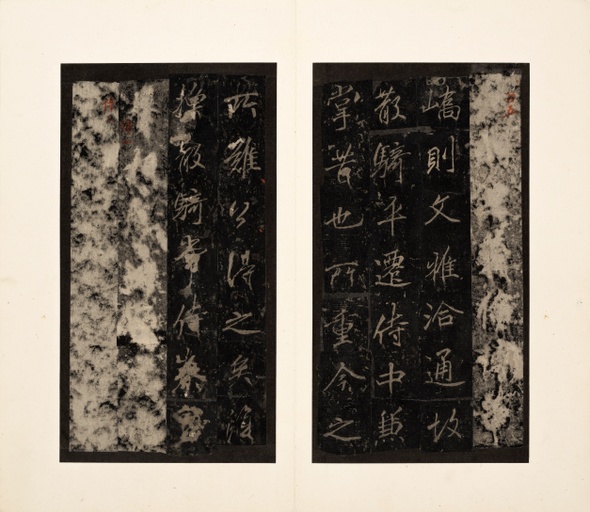 嶠則文雅洽通故
散騎平遷侍中兼
掌昔也所重今之
所難公得之矣
散騎常侍